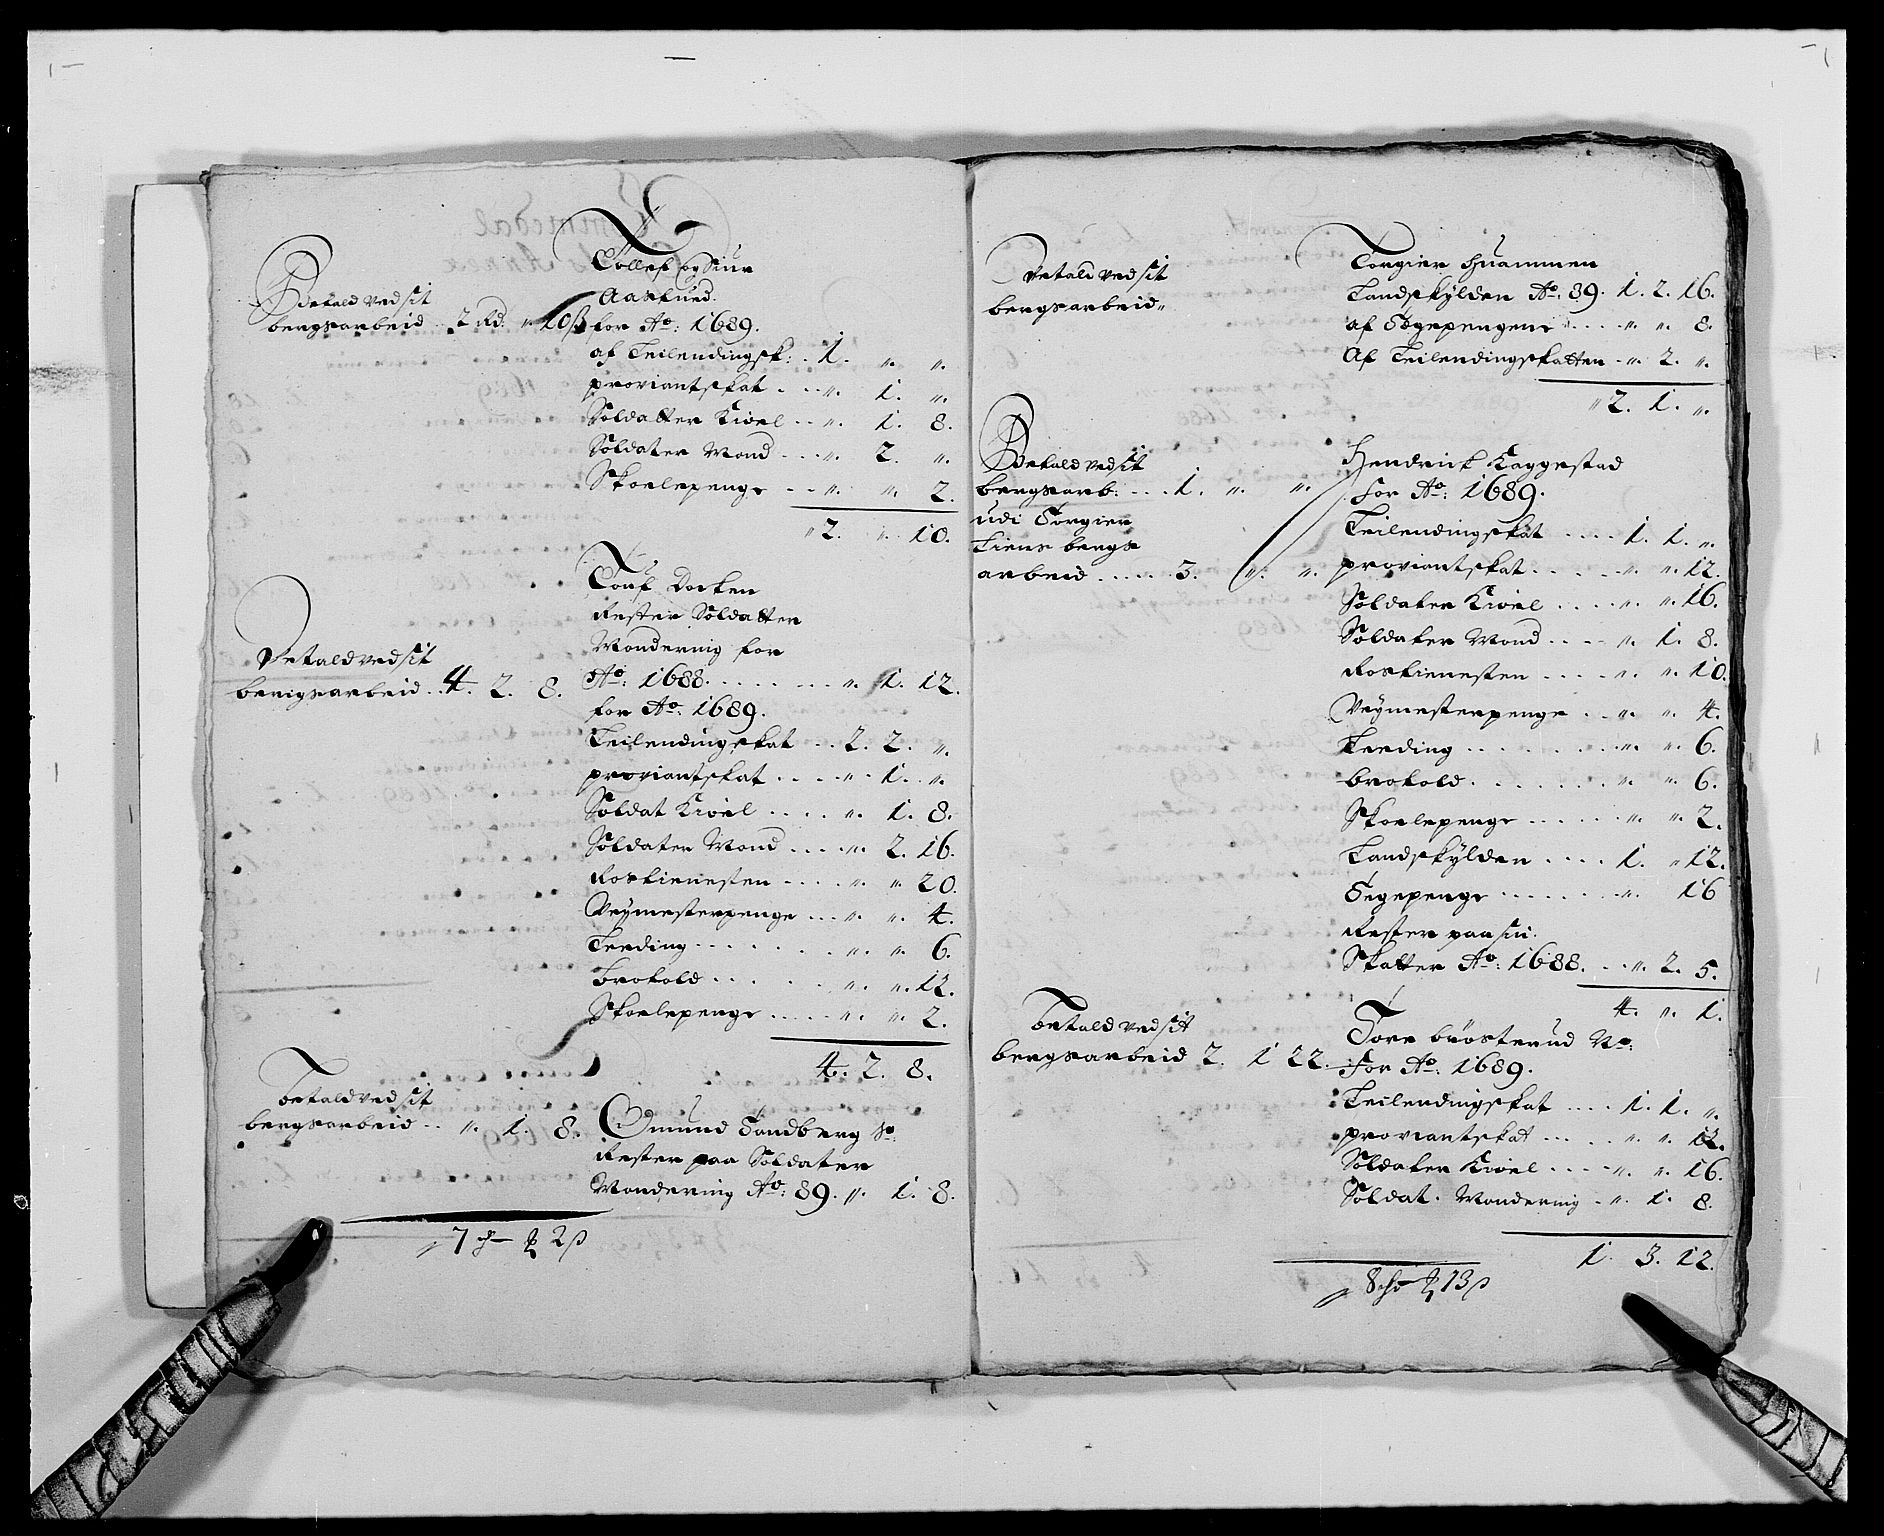 Betald ved sit
bergsarbeid .. 2 Rd. " 10 ß
Tollef og Siur
Aasrud.
for Ao: 1689.
af Leilendingsk: . 1. ". ".
proviantskat . . . ". 1. ".
Soldatter Kioel . . ". 1. 8.
Soldater Mond . . . ". 2. ".
Skoelepenge . . ". ". 2.
" 2. ". 10.
Betald ved sit
bergsarbeid . . 4. 2. 8.
Touf Docken
Rester Soldatter
Mondering for
Ao: 1688. . . . . . . ". 1. 12.
for Ao: 1689.
Leilendingskat . . 2. 2. ".
proviantskat . . . . ". 1. ".
Soldat Kioel . . . . ". 1. 8.
Soldater Mond . . . . ". 2. 16.
Rostienesten . . . . ". ". 20.
Veymesterpenge . . . ". ". 4.
Leeding . . . . . . ". ". 6.
brotold . . . . . ". ". 12.
Skoelepenge . . . . ". ". 2.
4. 2. 8.
betald ved sit
bergsarbeid . . ". 1. 8.
Omund Sandberg
Rester paa Soldater
Mondering Ao: 89. ". 1. 8.
7 2 ß
Betald ved sit
bergsarbeid "
Torgier Huammen
Landskylden Ao: 89. 1. 2. 16.
af Søgepengene . . . . ". ". 8.
Af Leilendingskatten . ". 2. ".
" 2. 1. ".
Betald ved sit
bergsarb: . . . 1. ". ".
udi Torgier
Liens bergs
arbeid . . . . . 3. ". ".
Hendrick Kaggestad
for Ao: 1689.
Leilendingskat . . . . 1. 1. ".
proviantskat . . . . . ". ". 12.
Soldater Kioel . . . . ". ". 16.
Soldater Mond . . . . ". 1. 8.
Rostienesten . . . . ". ". 10.
Veymesterpenge . . ". ". 4.
Leeding . . . . . . . . ". ". 6.
brotold . . . . . . . . ". ". 6.
Skoelepenge . . . . . . ". ". 2.
Landskylden . . . . 1. " 12.
Søgepenge . . . . . . . ". 16
Rester paa sin
Skatter Ao: 1688. . . ". 2. 5.
4. ". 1.
betald ved sit
bergsarbeid 2. 1 22.
Tore brösterud No:
for Ao: 1689.
Leilendingskat . . . . 1. 1. ".
proviantskat . . . . . ". ". 12.
Soldater Kioel . . . . ". ". 16.
Soldat. Mondering . . ". 1. 8.
1. 3. 12.
8 13 ß